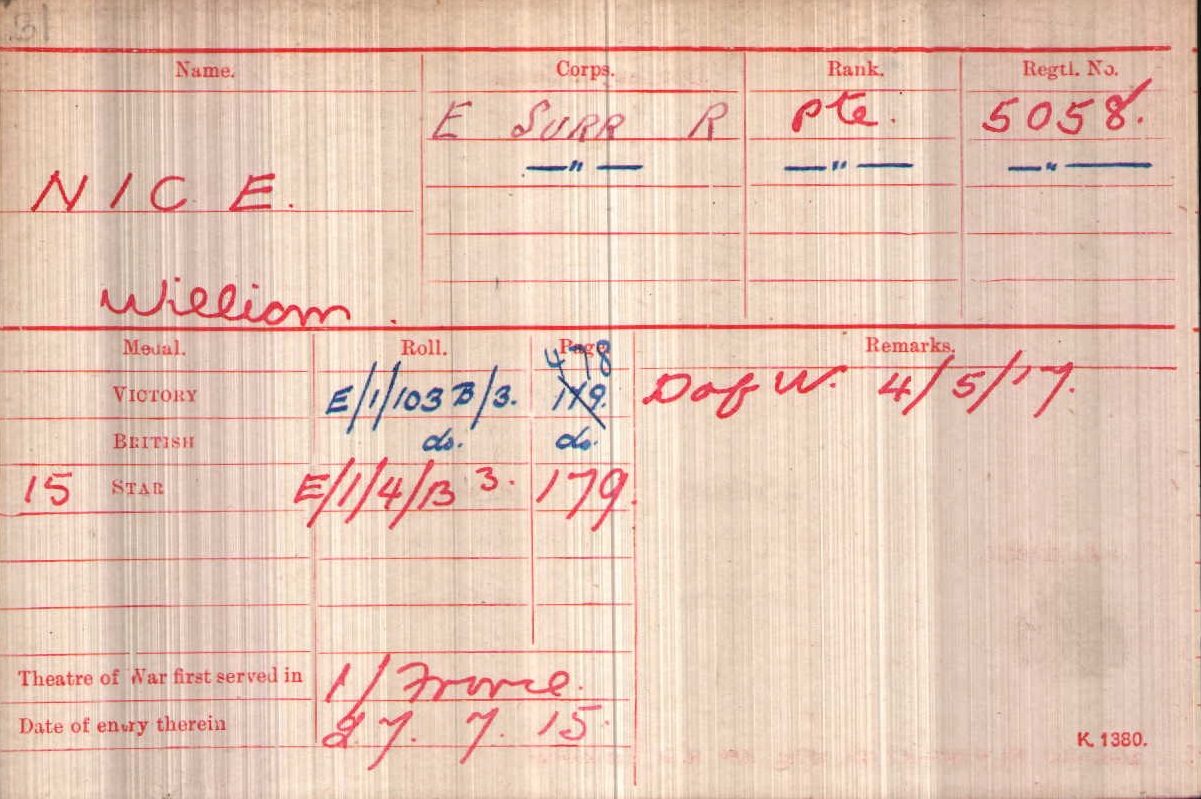 31
Name. Corps. Rank. Regtl. No.
E SURR R Pte. 5058.
—"— —"— —"—
NICE.
William.
Medal. Roll. Page. Remarks.
478
VICTORY E/1/103 B/3. 179. D of W. 4/5/17.
BRITISH do. do.
15 STAR E/1/4/B 3. 179.
Theatre of War first served in 1/ France.
Date of entry therein 27. 7. 15.
K. 1380.